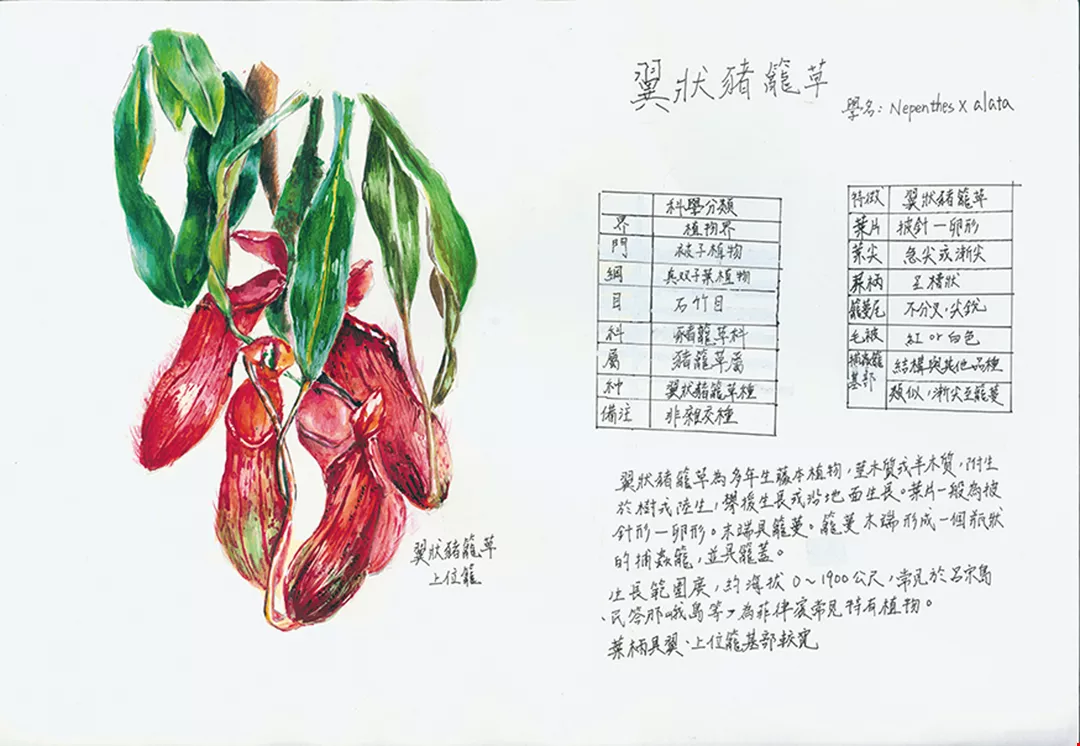 翼狀豬籠草
學名: Nepenthes x alata
科學分類
界 植物界
門 被子植物
綱 真双子葉植物
目 石竹目
科 豬籠草科
屬 豬籠草屬
种 翼狀豬籠草種
備注 非雜交種
特徵 翼狀豬籠草
葉片 披針—卵形
葉尖 急尖或漸尖
葉柄 呈槽狀
籠蔓尾 不分叉,尖銳
毛被 紅 or 白色
捕蟲籠 結構與其他品種
基部 類似,漸尖至籠蔓
翼狀豬籠草為多年生藤本植物,莖木質或半木質,附生
於樹或陸生,攀後生長或沿地面生長。葉片一般為披
針形—卵形。末端具籠蔓。籠蔓末端形成一個瓶狀
的捕蟲籠,並具籠蓋。
生長範圍廣,約海拔0~1900公尺,常見於呂宋島
、民答那峨島等,為菲律賓常見特有植物。
葉柄具翼、上位籠基部較寬
翼狀豬籠草
上位籠